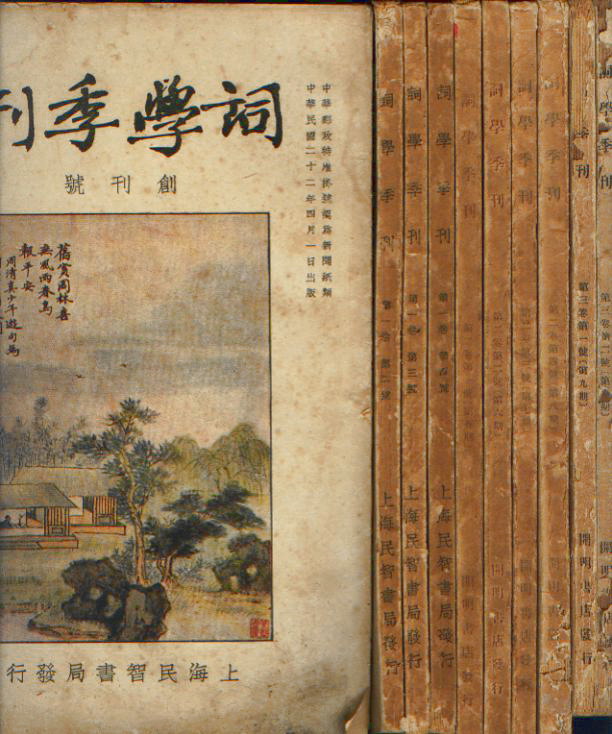 詞學季刊
創刊號
中華郵政特准掛號認為新聞紙類
中華民國二十二年四月一日出版
舊賞園林喜
無風雨春鳥
報平安
周清真少年遊句為
上海民智書局發行
詞學季刊 第一卷 第二號 上海民智書局發行
詞學季刊 第一卷 第三號 上海民智書局發行
詞學季刊 第一卷 上海民智書局發行
詞學季刊 開明書店發行
詞學季刊 第二卷第二號(第六期) 開明書店發行
詞學季刊 開明書店發行
詞學季刊 開明書店發行
季刊 第三卷第一號(第九期) 開明書店發行
詞學季刊 開明書店